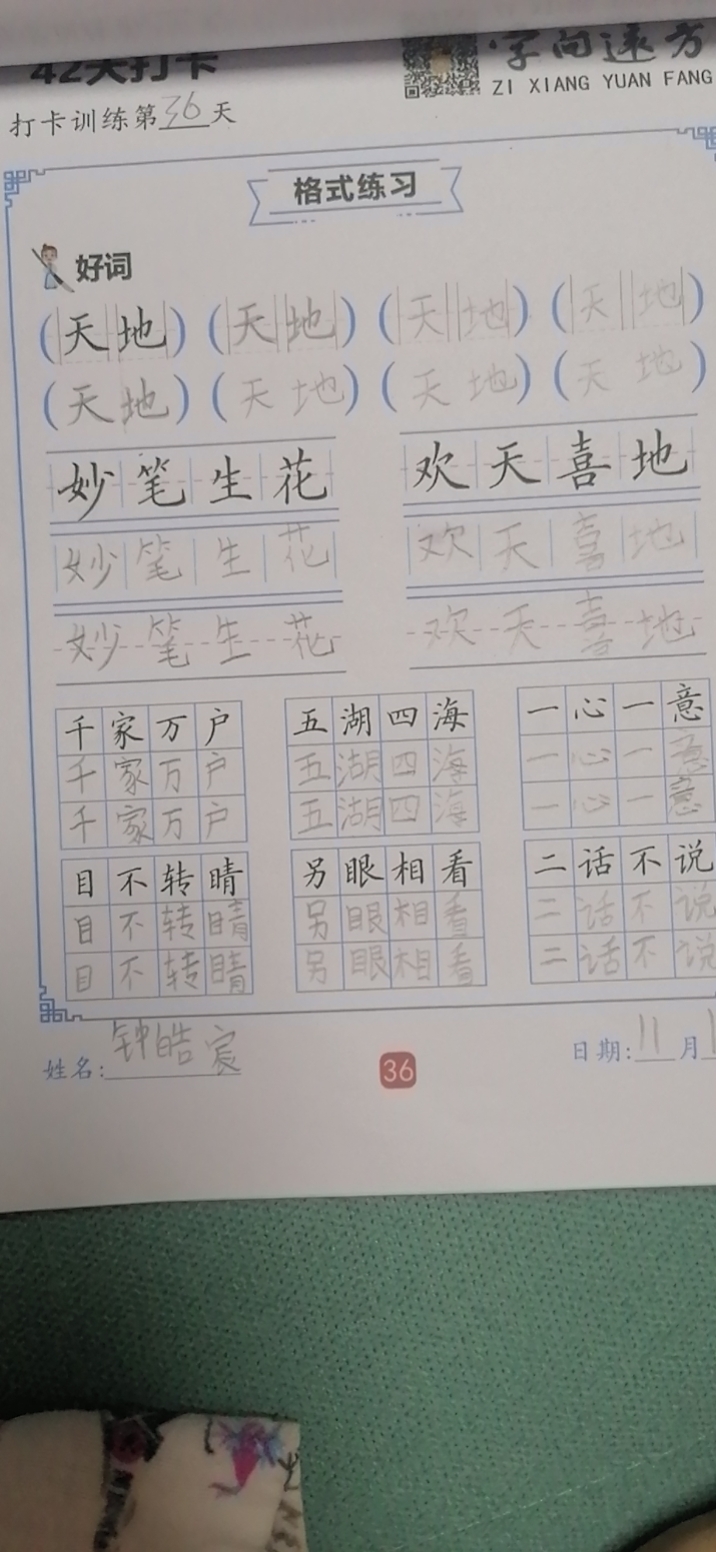 42天打卡
字向远方
ZI XIANG YUAN FANG
打卡训练第36天
格式练习
好词
(天地) (天地) (天地) (天地)
(天地) (天地) (天地) (天地)
妙笔生花 欢天喜地
妙笔生花 欢天喜地
妙笔生花 欢天喜地
千家万户 五湖四海 一心一意
千家万户 五湖四海 一心一意
千家万户 五湖四海 一心一意
目不转睛 另眼相看 二话不说
目不转睛 另眼相看 二话不说
目不转睛 另眼相看 二话不说
姓名:钟皓宸 36 日期:11月1